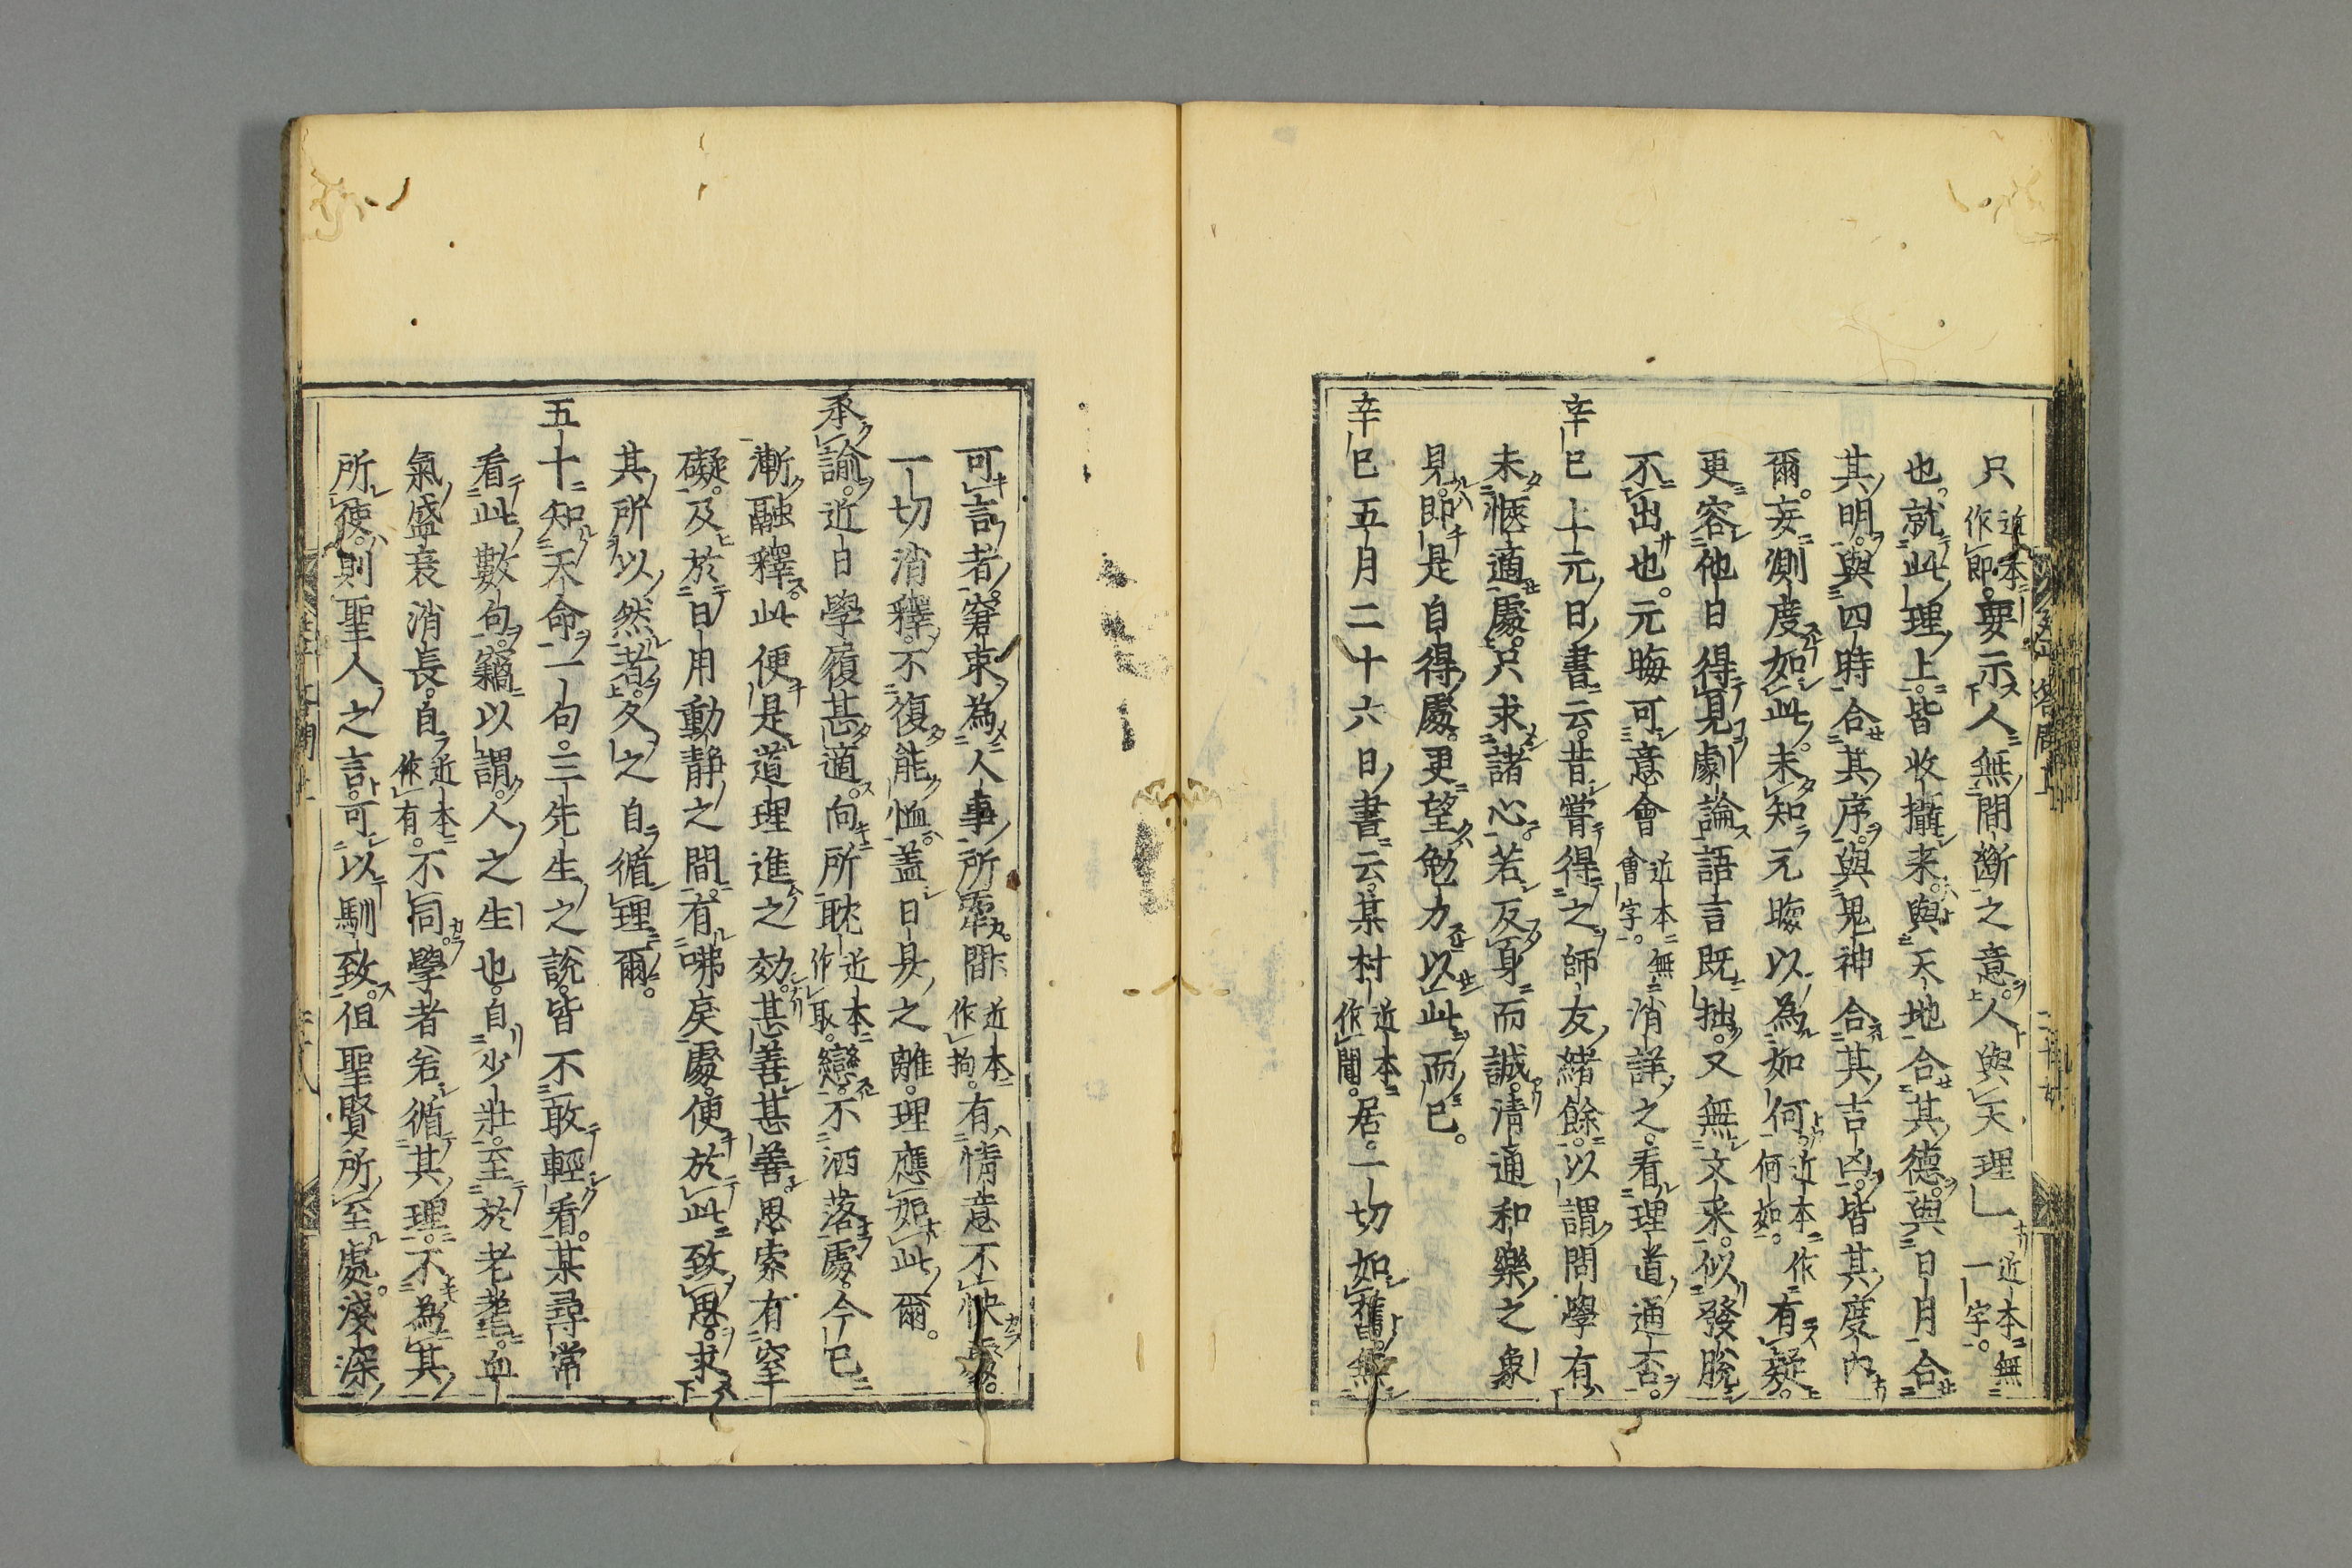 只近本作即。要示人無間斷之意。人與天理一近本無一字。
也。就此理上。皆收攝来。與天地合其德。與日月合
其明。與四時合其序。與鬼神合其吉凶。皆其度内
爾。妄測度如此。未知元晦以為如何近本作何如。有疑。
更容他日得見劇論。語言既拙。又無文采。似發脫
不出也。元晦可意會近本無會字。消詳之。看理道通否。
辛巳上元日書云。昔嘗得之師友緒餘。以謂問學有
未愜適處。只求諸心。若反身而誠。清通和樂之象
見。即是自得處。更望勉力以此而已。
辛巳五月二十六日書云。某村近本作閫。居。一切如舊。無
可言者。窘束為人事所牽。間近本作拘。有情意不快處。
一切消釋。不復能恤。盖日昃之離。理應如此爾。
承諭。近日學履甚適。向所耽近本作取。戀。不洒落處。今已
漸融釋。此便是道理進之効。甚善甚善。思索有窒
礙。及於日用動靜之間。有咈戾處。便於此致思。求
其所以然者。久之自循理爾。
五十知天命一句。三先生之說。皆不敢輕看。某尋常
看此數句。竊以謂。人之生也。自少壯。至於老耄。血
氣盛衰消長。自近本作有。不同。學者若循其理。不為其
所使。則聖人之言。可以馴致。但聖賢所至處。淺深